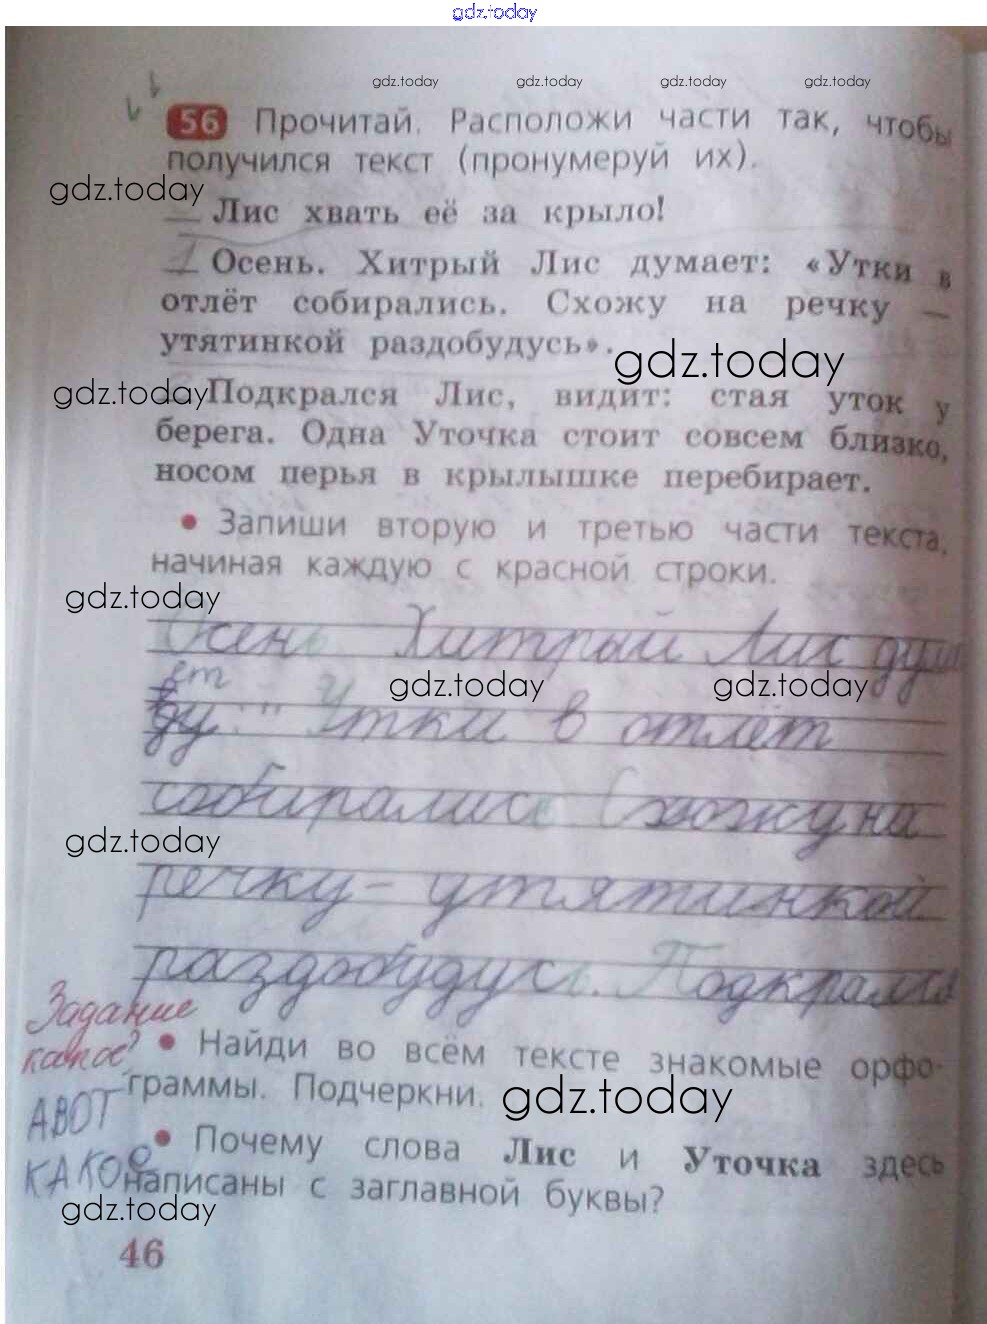 gdz.today
gdz.today gdz.today gdz.today gdz.today
56 Прочитай. Расположи части так, чтобы
получился текст (пронумеруй их).
gdz.today
Лис хвать её за крыло!
1 Осень. Хитрый Лис думает: «Утки в
отлёт собирались. Схожу на речку —
утятинкой раздобудусь».
gdz.today
gdz.today
Подкрался Лис, видит: стая уток у
берега. Одна Уточка стоит совсем близко,
носом перья в крылышке перебирает.
• Запиши вторую и третью части текста,
начиная каждую с красной строки.
gdz.today
Осень Хитрый Лис дума
ет
gdz.today gdz.today
ду: " Утки в отлёт
собирались Схожу на
gdz.today
речку – утятинкой
раздобудусь. Подкрался
Задание
какое?
• Найди во всём тексте знакомые орфо-
граммы. Подчеркни.
gdz.today
АВОТ
КАКОЕ
• Почему слова Лис и Уточка здесь
написаны с заглавной буквы?
gdz.today
46